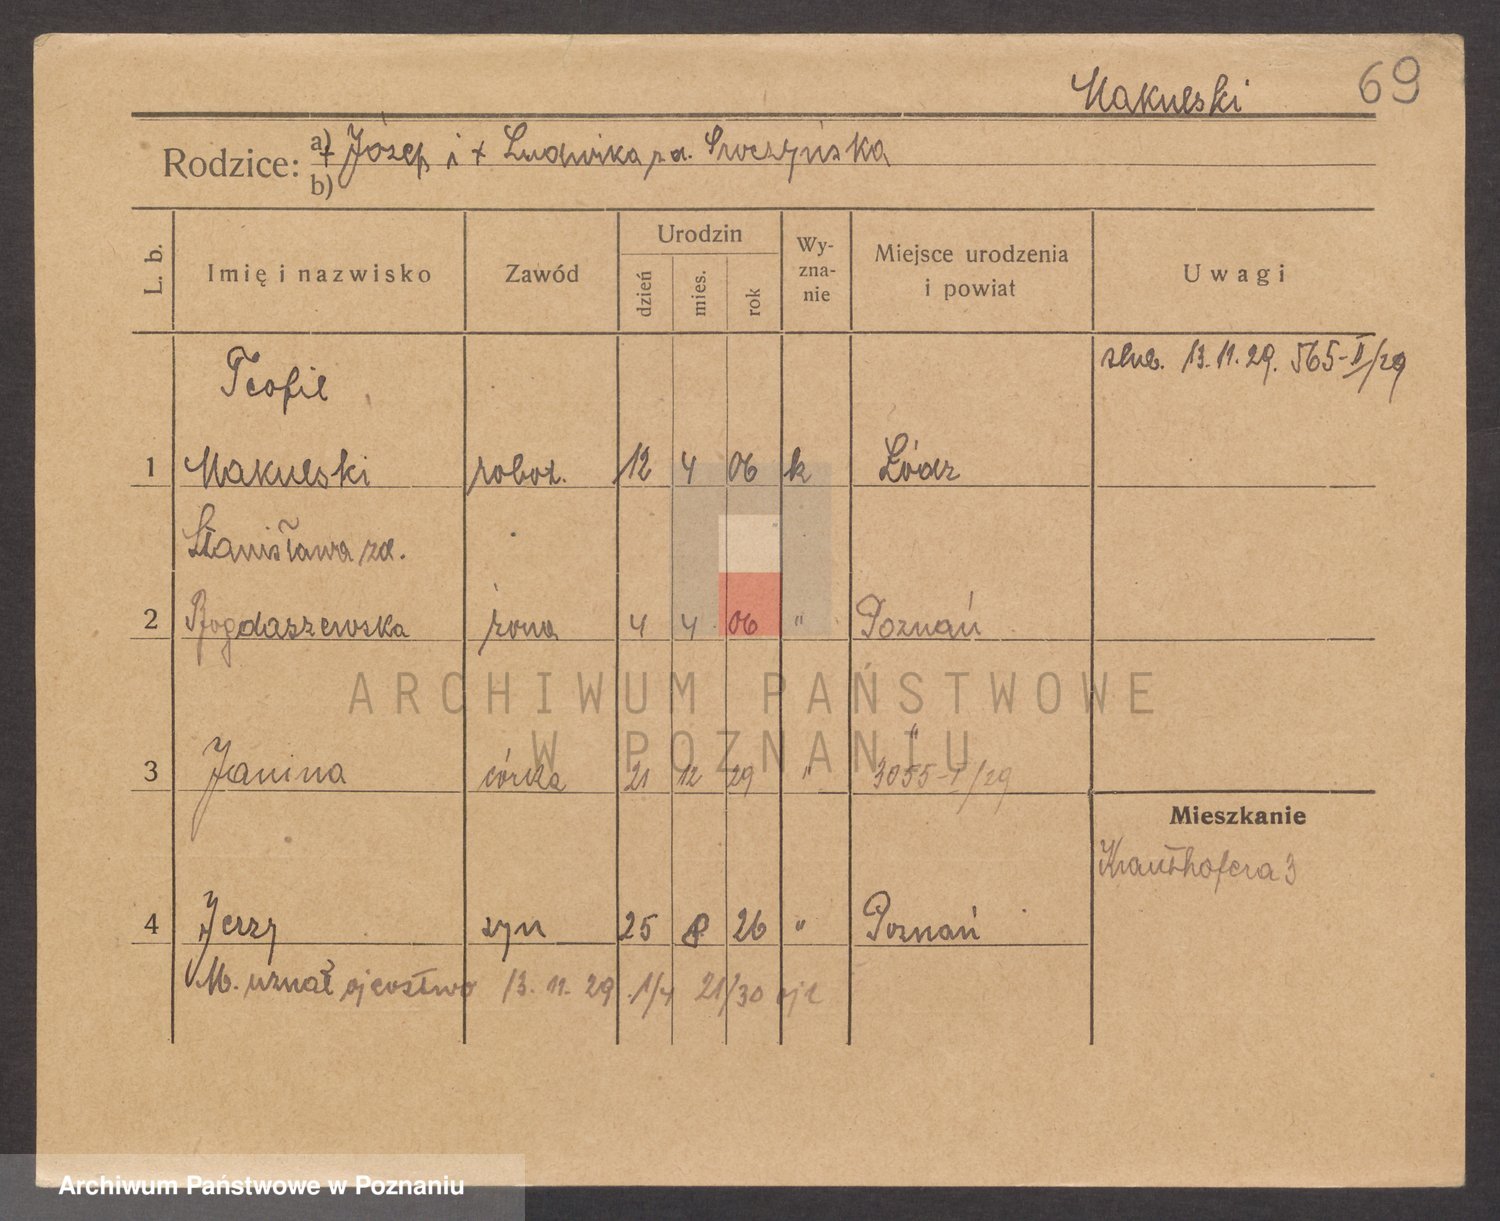 Makulski 69
Rodzice: a) + Józef i + Ludwika zd. Sroczyńska
b)
L. b. Imię i nazwisko Zawód Urodzin dzień mies. rok Wy-zna-nie Miejsce urodzenia i powiat Uwagi
Teofil ślub. 13.11.29. 565-II/29
1 Makulski robot. 12 4 06 k Łódz
Stanisława zd.
2 Bogdaszewska żona 4 4 06 " Poznań
ARCHIWUM PAŃSTWOWE
W POZNANIU
"
3 Janina córka 21 12 29 " 3055-I/29
Mieszkanie
Krauthofera 3
4 Jerzy syn 25 8 26 " Poznań
M. uznał ojcostwo 13. 11. 29 1/4 21/30
Archiwum Państwowe w Poznaniu